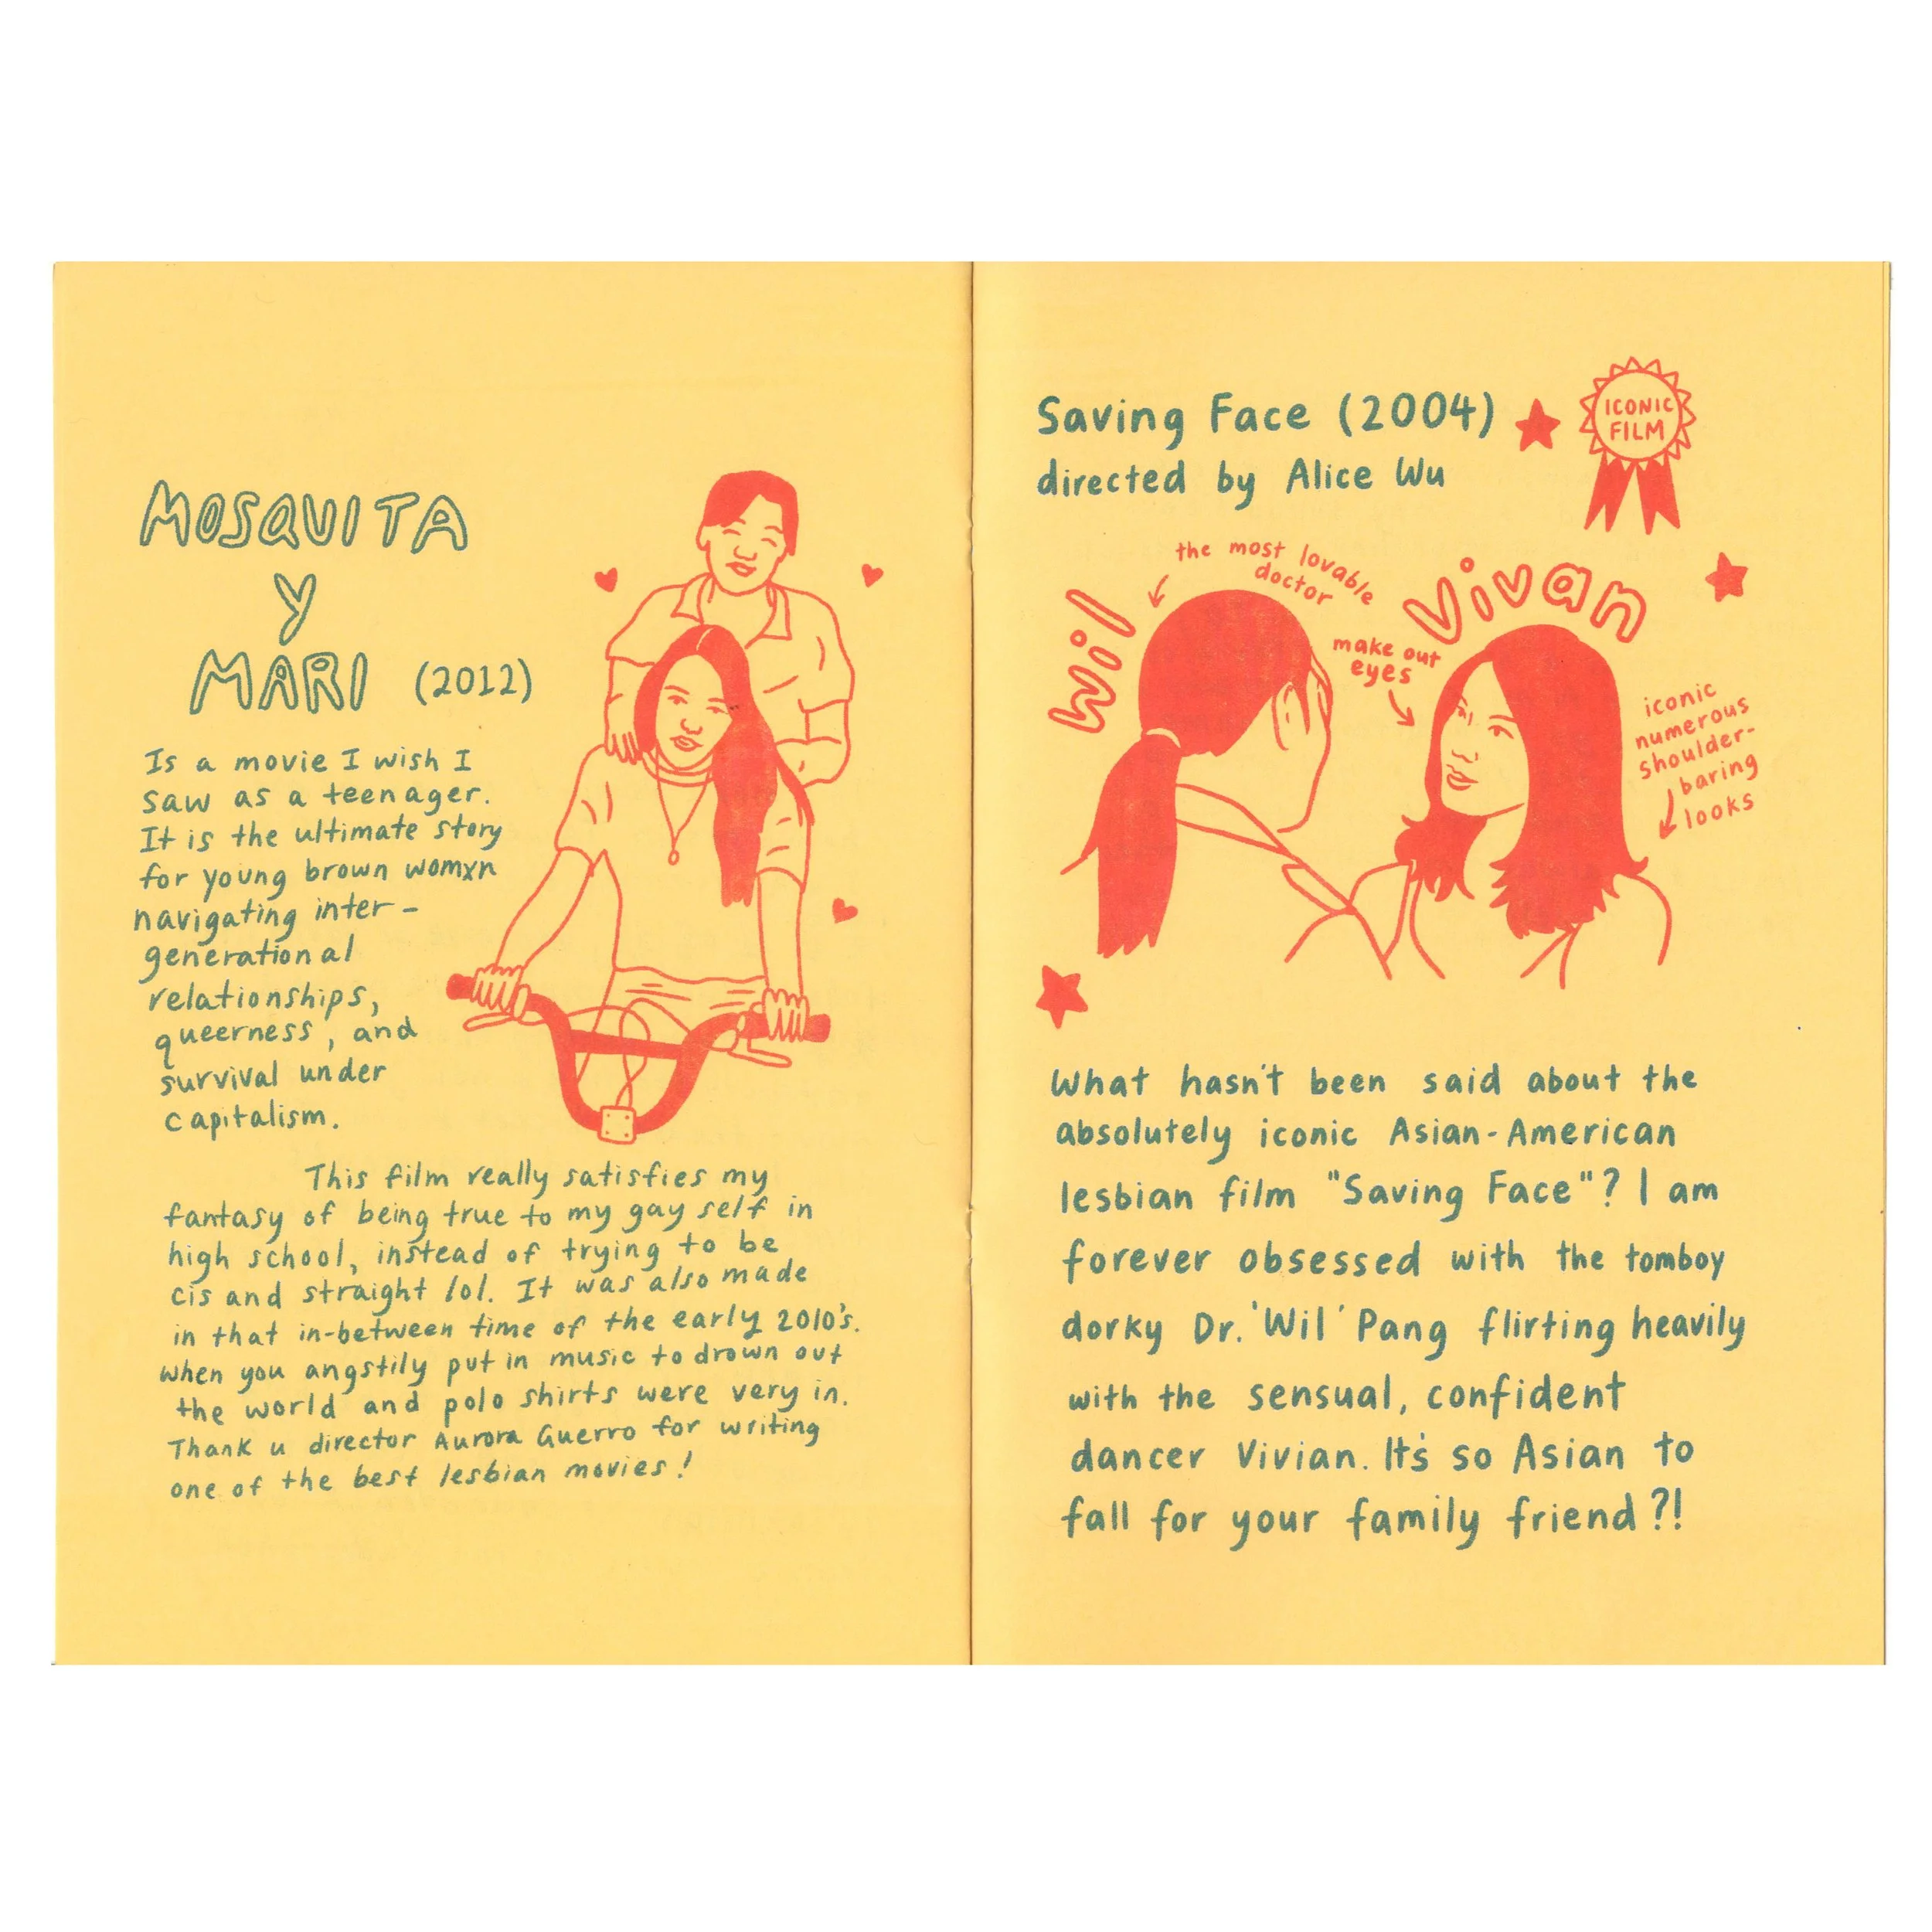 MOSQUITA
y
MARI (2012)
Is a movie I wish I
saw as a teenager.
It is the ultimate story
for young brown womxn
navigating inter-
generational
relationships,
queerness, and
survival under
capitalism.
This film really satisfies my
fantasy of being true to my gay self in
high school, instead of trying to be
cis and straight lol. It was also made
in that in-between time of the early 2010's.
when you angstily put in music to drown out
the world and polo shirts were very in.
Thank u director Aurora Guerro for writing
one of the best lesbian movies!
Saving Face (2004)
directed by Alice Wu
ICONIC
FILM
the most lovable
doctor
Wil
Vivan
make out
eyes
iconic
numerous
shoulder-
baring
looks
What hasn't been said about the
absolutely iconic Asian-American
lesbian film "Saving Face"? I am
forever obsessed with the tomboy
dorky Dr. 'Wil' Pang flirting heavily
with the sensual, confident
dancer Vivian. It's so Asian to
fall for your family friend?!